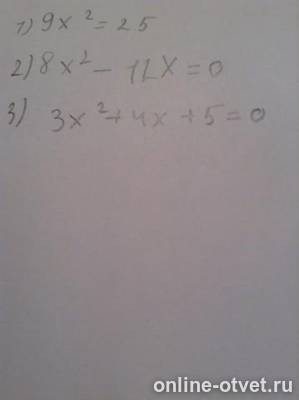 1) 9x² = 25
2) 8x² - 12x = 0
3) 3x² + 4x + 5 = 0
online-otvet.ru